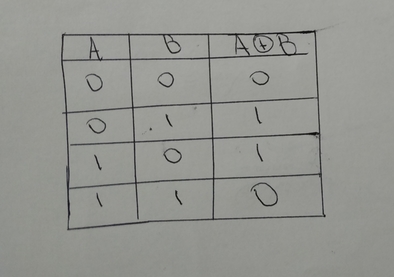 A B A⊕B
0 0 0
0 1 1
1 0 1
1 1 0